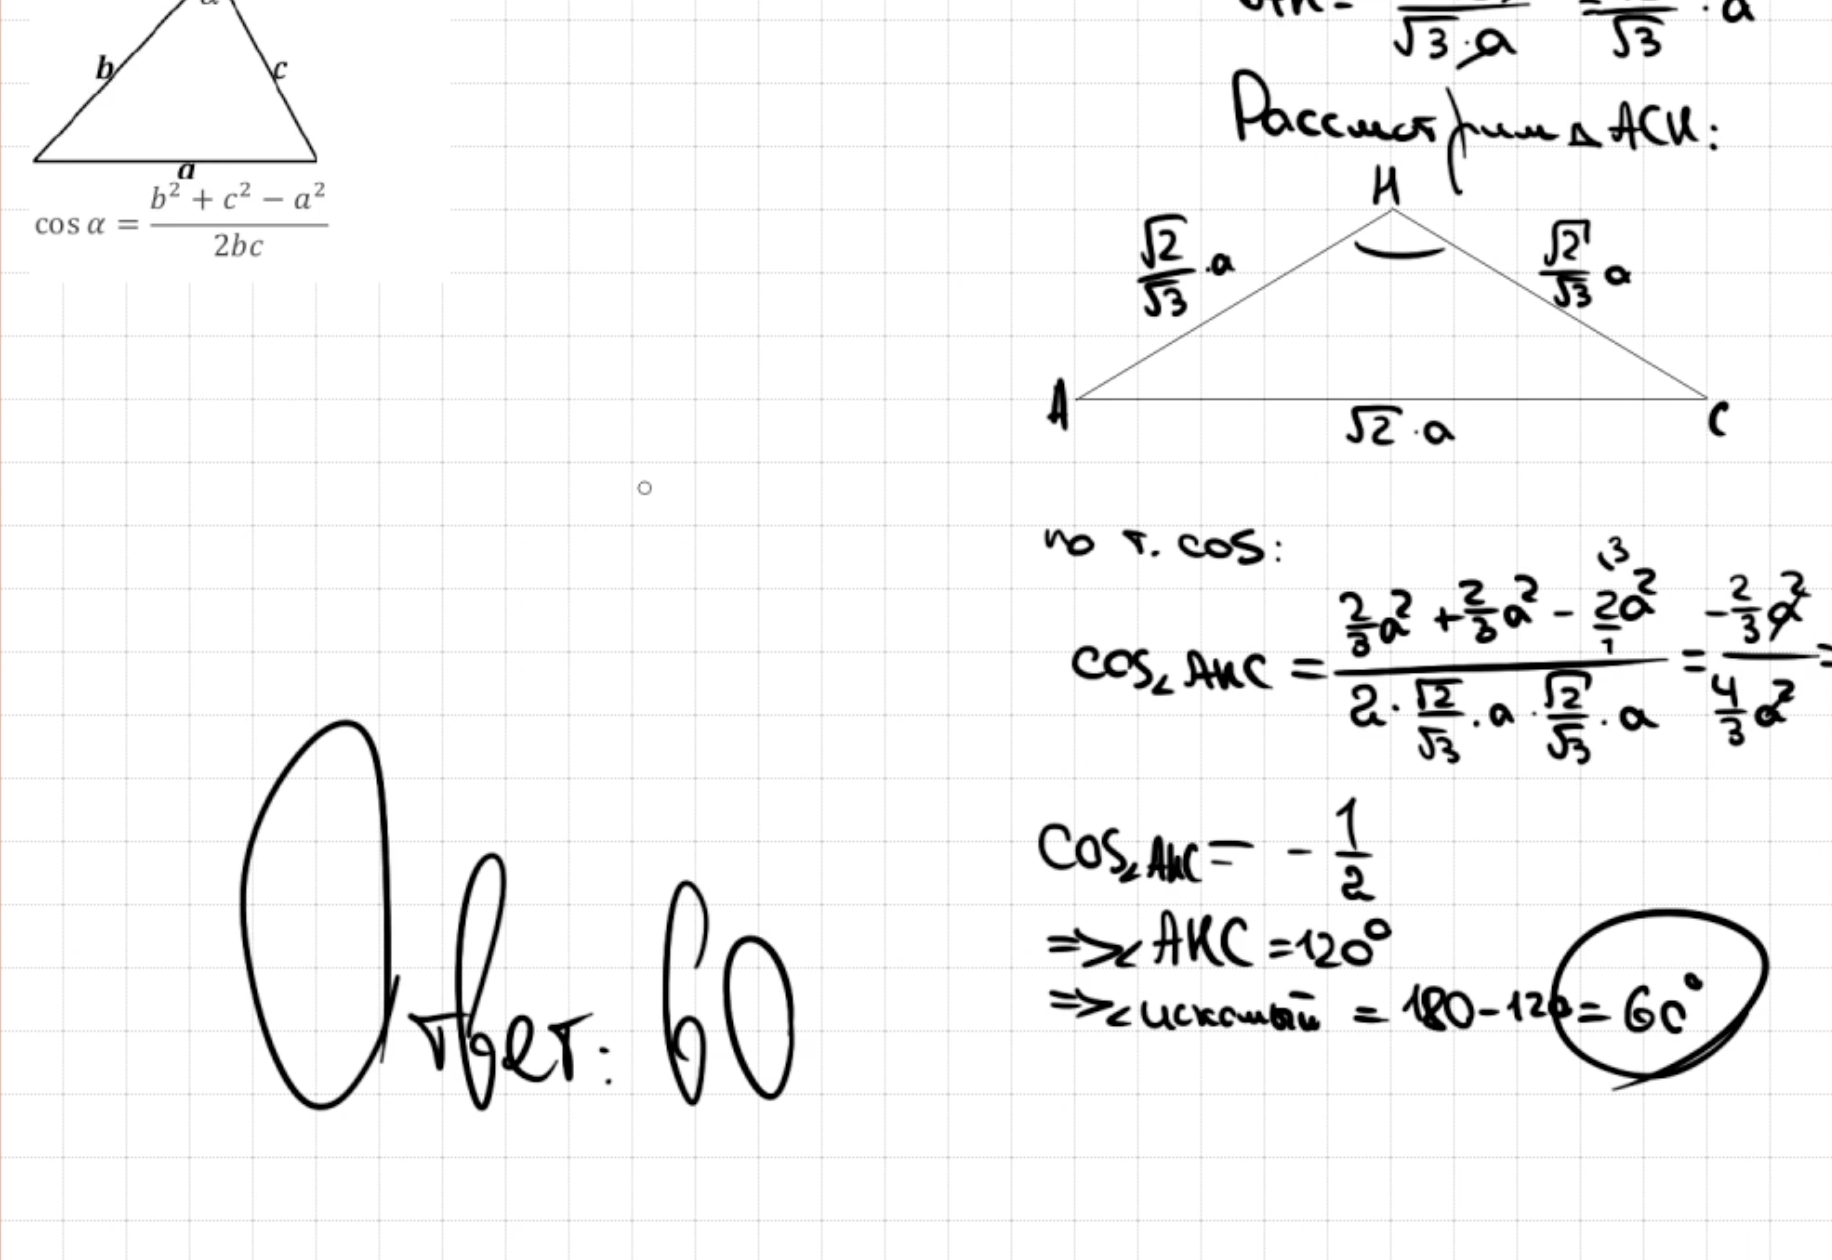 α
b c
a
cos α = (b² + c² − a²) / 2bc
= / √3 · a = / √3 · a
Рассмотрим △ ACK:
K
√2/√3 · a √2/√3 a
A C
√2 · a
по т. cos:
cos∠AKC = (2/3 a² + 2/3 a² − 2/1 a² ⁽³) / (2 · √2/√3 · a · √2/√3 · a) = (−2/3 a²) / (4/3 a²) =
cos∠AKC = − 1/2
=> ∠AKC = 120°
=> ∠искомый = 180 − 120 = 60°
Ответ: 60